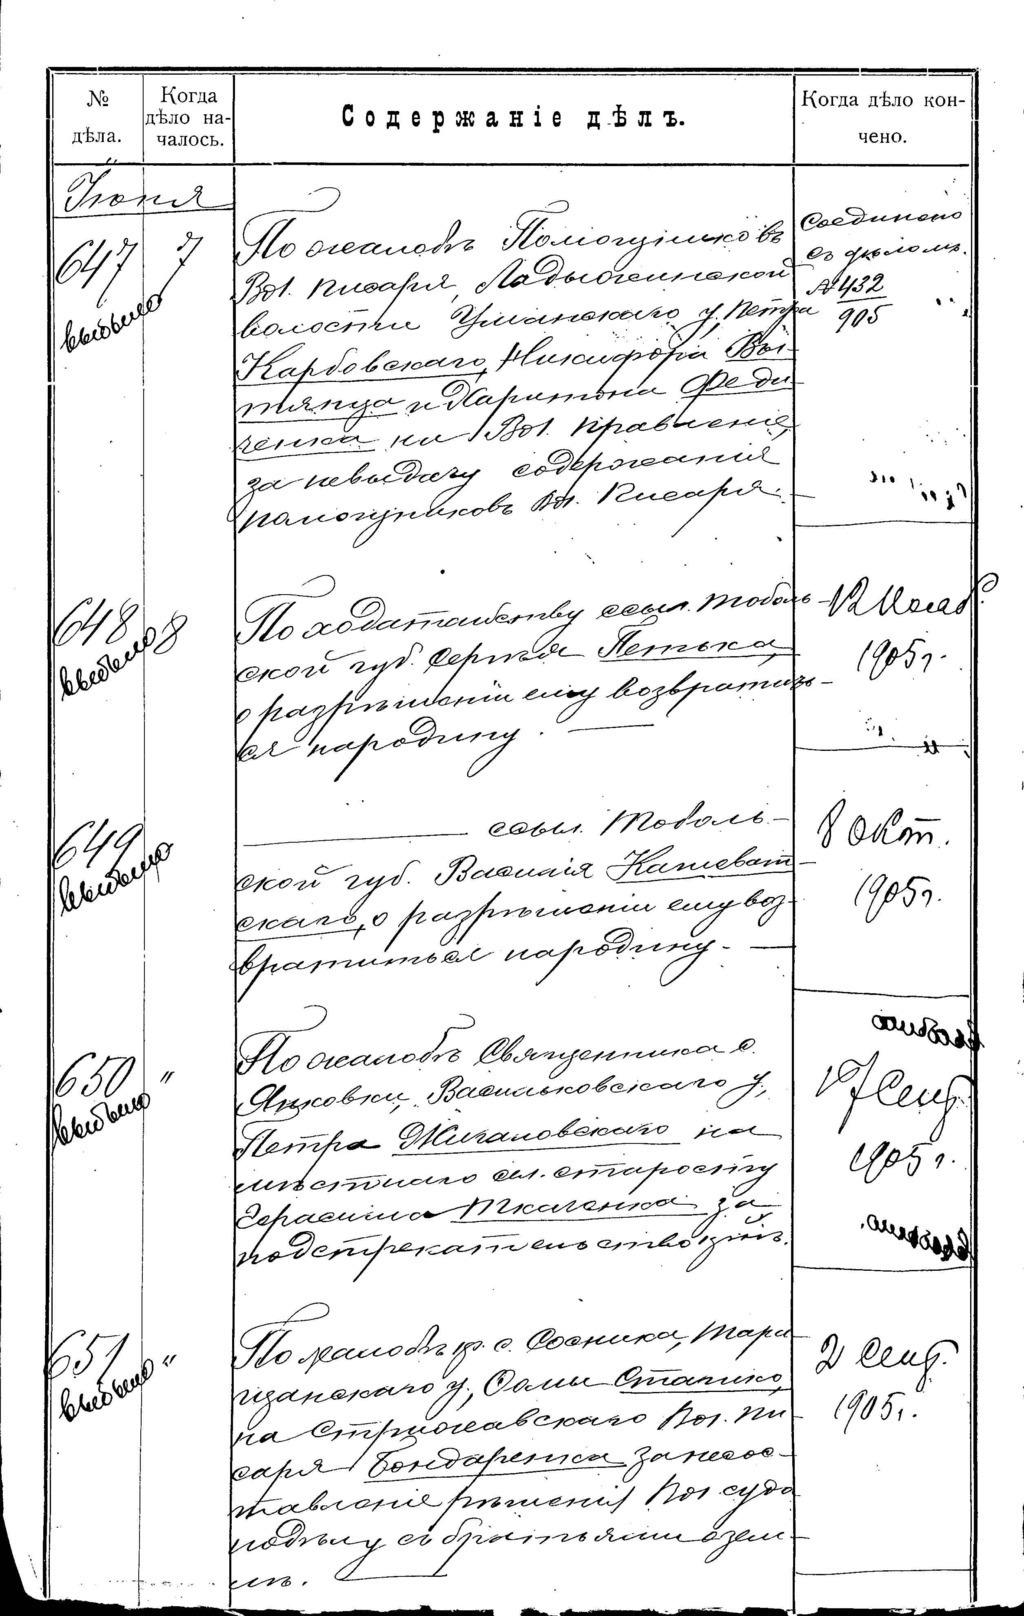 № дѣла.
Когда дѣло на-
чалось.
Содержаніе дѣлъ.
Когда дѣло кон-
чено.
Іюня
647
7
выбыло
По жалобѣ Помощниковъ
Вол. писаря, Ладыжинской
волости Уманскаго у. Петра
Карбовскаго, Никифора Вы-
тянца и Харитона Феди
ченка на Вол. Правленіе,
за невыдачу содержанія
помощниковъ Вол. Писаря.
Соединено
съ дѣломъ
№ 432
905
648
8
выбыло
По ходатайству ссыл. Тоболь-
ской губ. Сергѣя Петька,
о разрѣшеніи ему возвратить-
ся на родину.
12 Нояб.
1905 г.
649
выбыло
ссыл. Тоболь-
ской губ. Василія Кашеват-
скаго, о разрѣшеніи ему воз-
вратиться на родину.
8 Окт.
1905 г.
650
"
выбыло
По жалобѣ Священника с.
Янковки, Васильковскаго у.,
Петра Жигаловскаго на
мѣстнаго сел. старосту
Герасима Ткаченка за
подстрекательство
выбыло
17 Сент.
1905 г.
выбыло.
651
"
выбыло
По жалобѣ кр. с. Сосника, Тара
щанскаго у., Фомы Статико,
на Стрижавскаго Вол. пи-
саря Бондаренка за несос-
тавленіе рѣшенія Вол. суда
по дѣлу съ братьями о зем-
лѣ.
2 Сент.
1905 г.